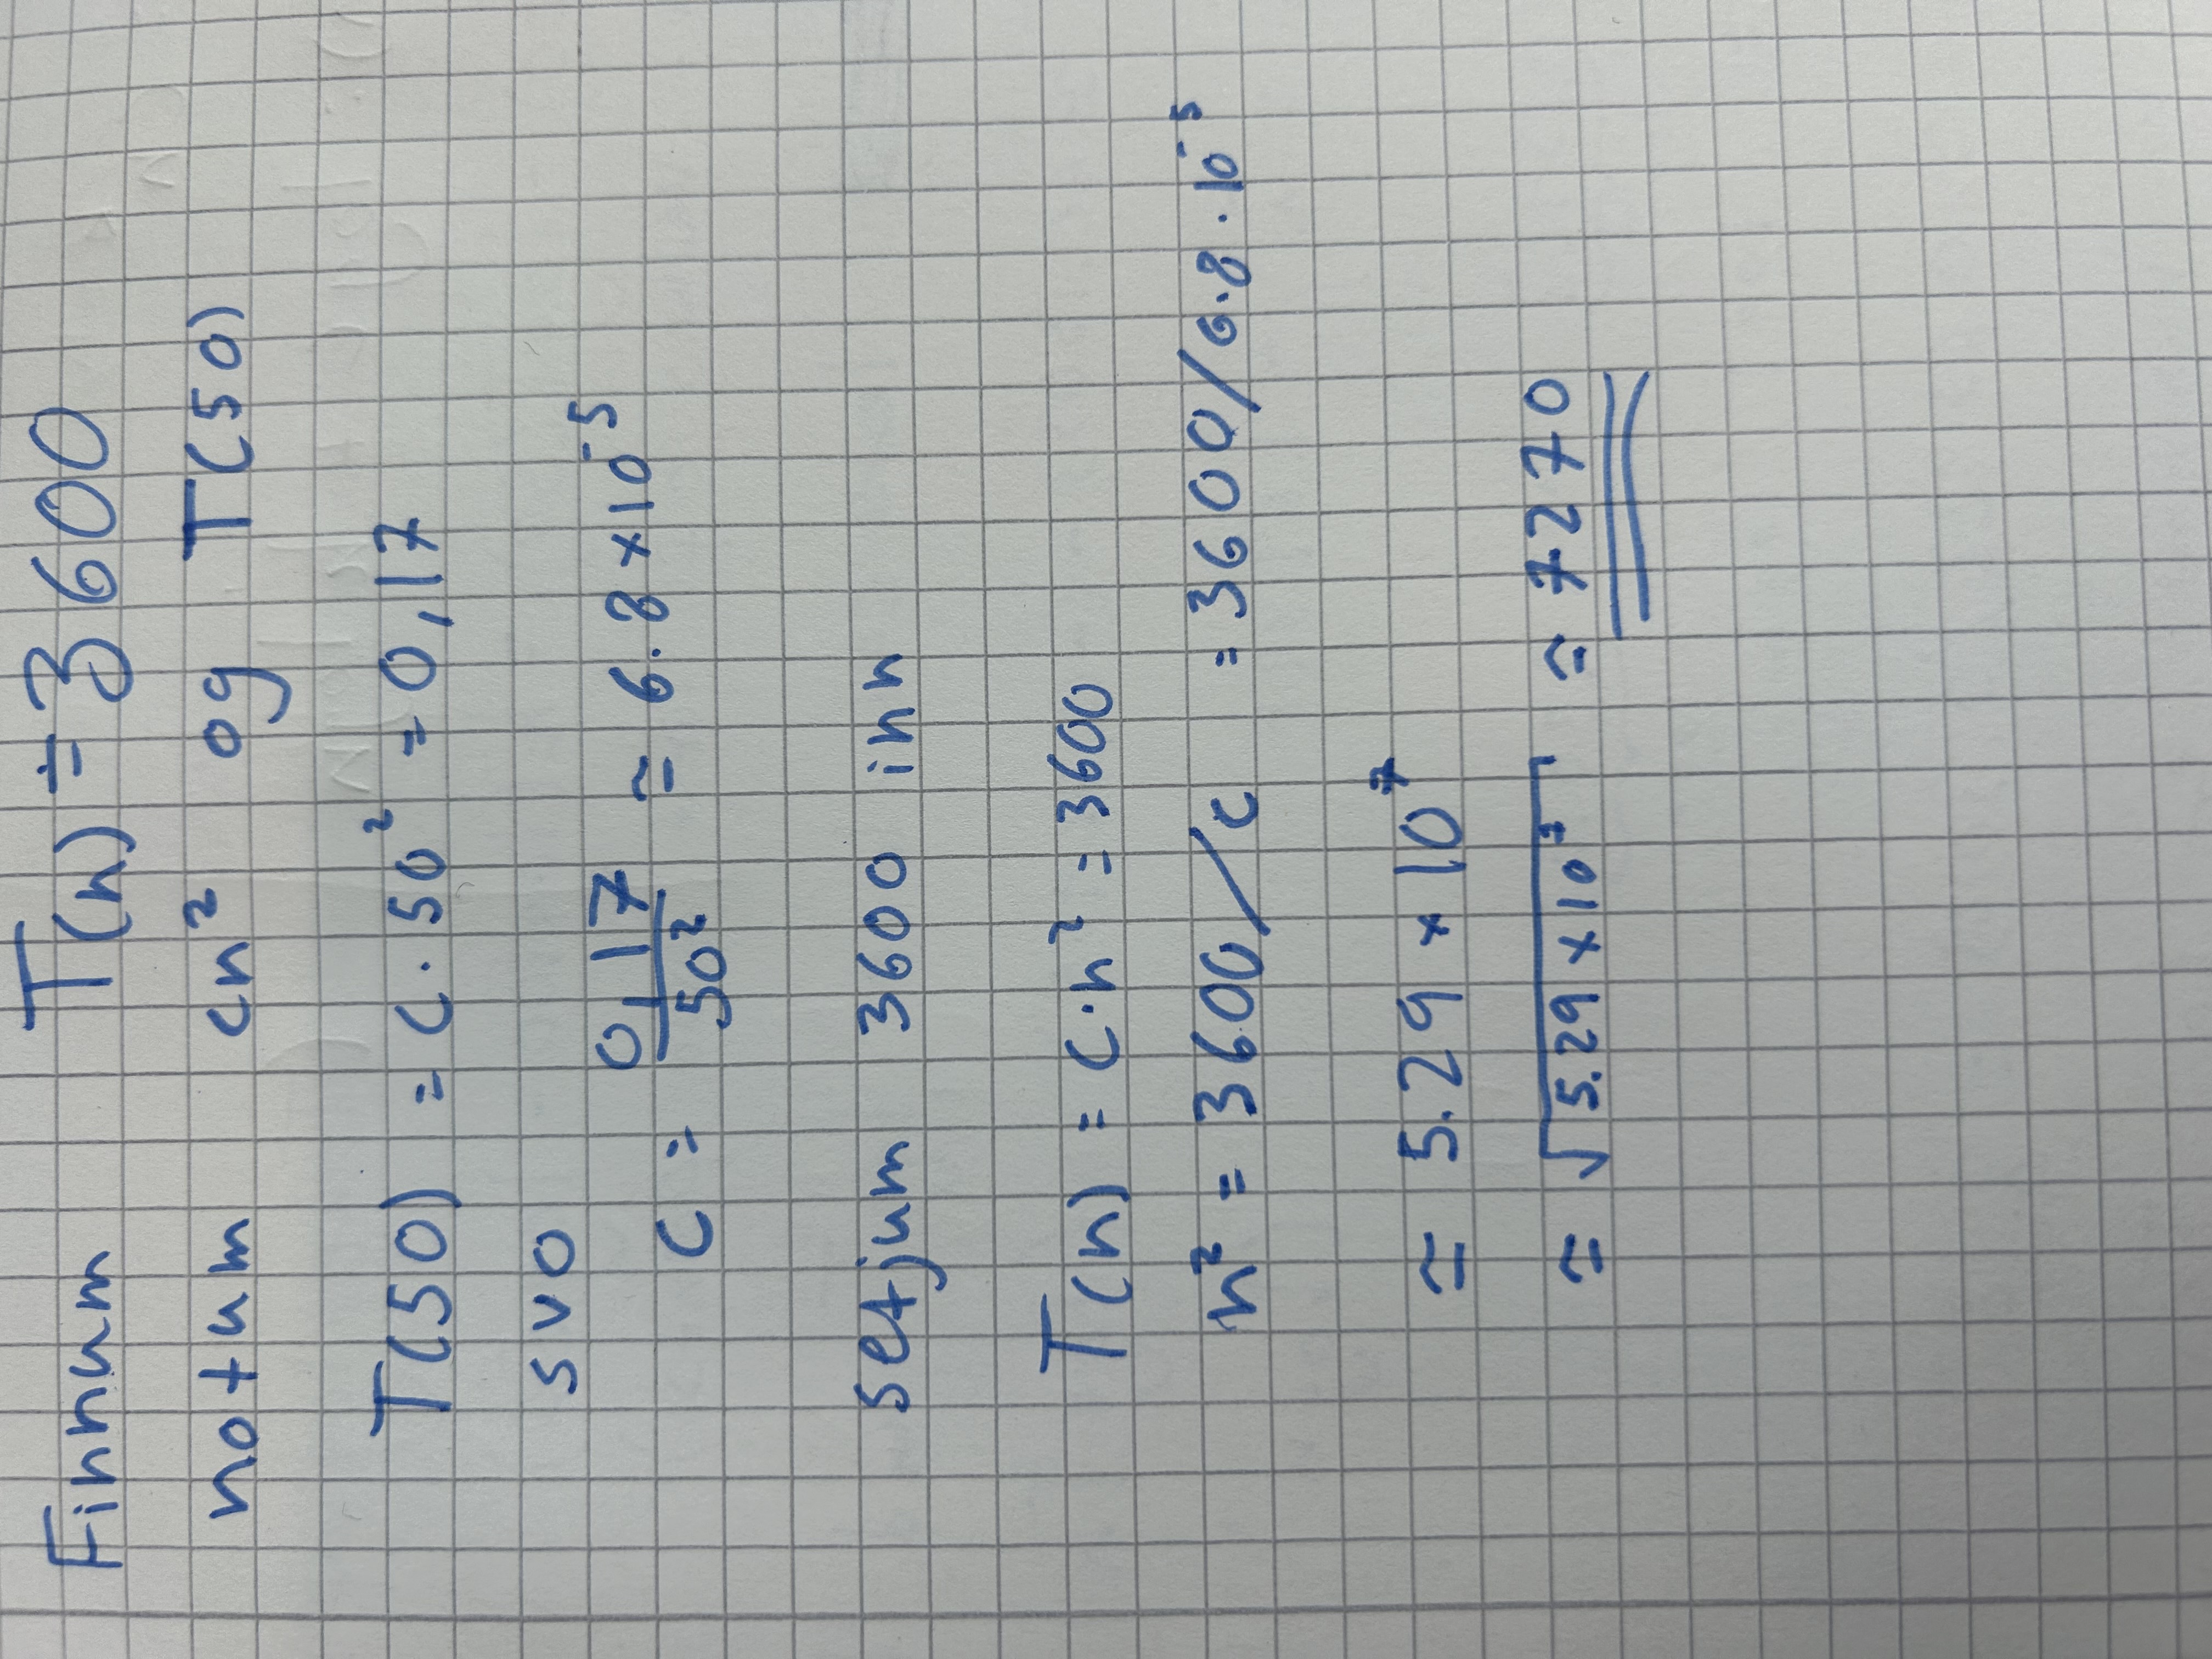 Finnum T(n) = 3600
notum cn² og T(50)
T(50) = c · 50² = 0,17
svo
c = 0,17 / 50² ≃ 6.8 × 10⁻⁵
setjum 3600 inn
T(n) = c · n² = 3600
n² = 3600 / c = 3600 / 6.8 · 10⁻⁵
≃ 5.29 × 10⁷
≃ √5.29 × 10⁷ ≃ 7270